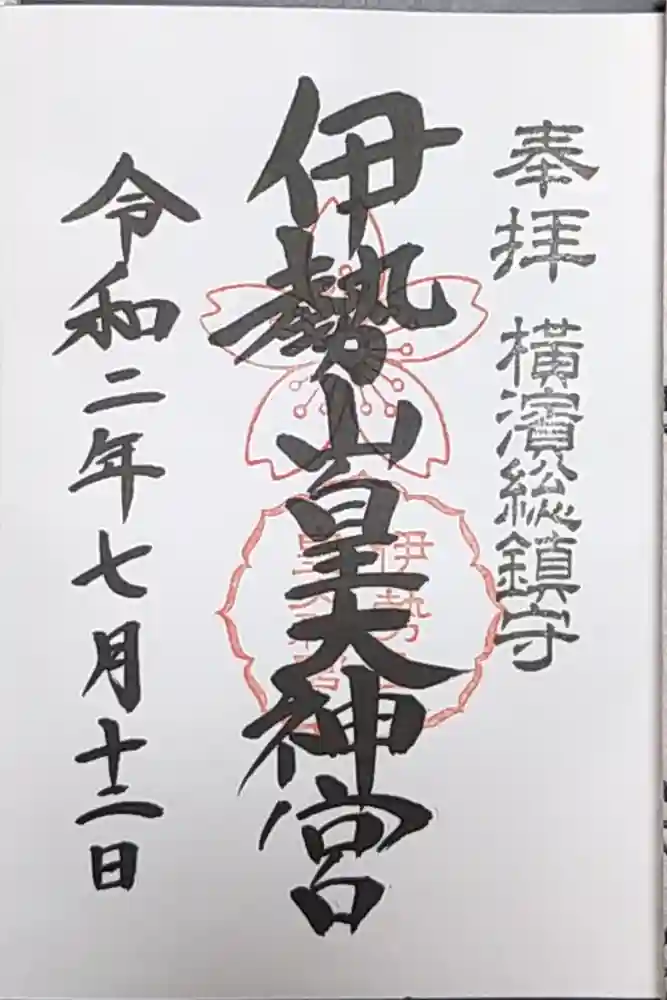 奉拝 横濱総鎮守
伊勢山皇大神宮
令和二年七月十二日